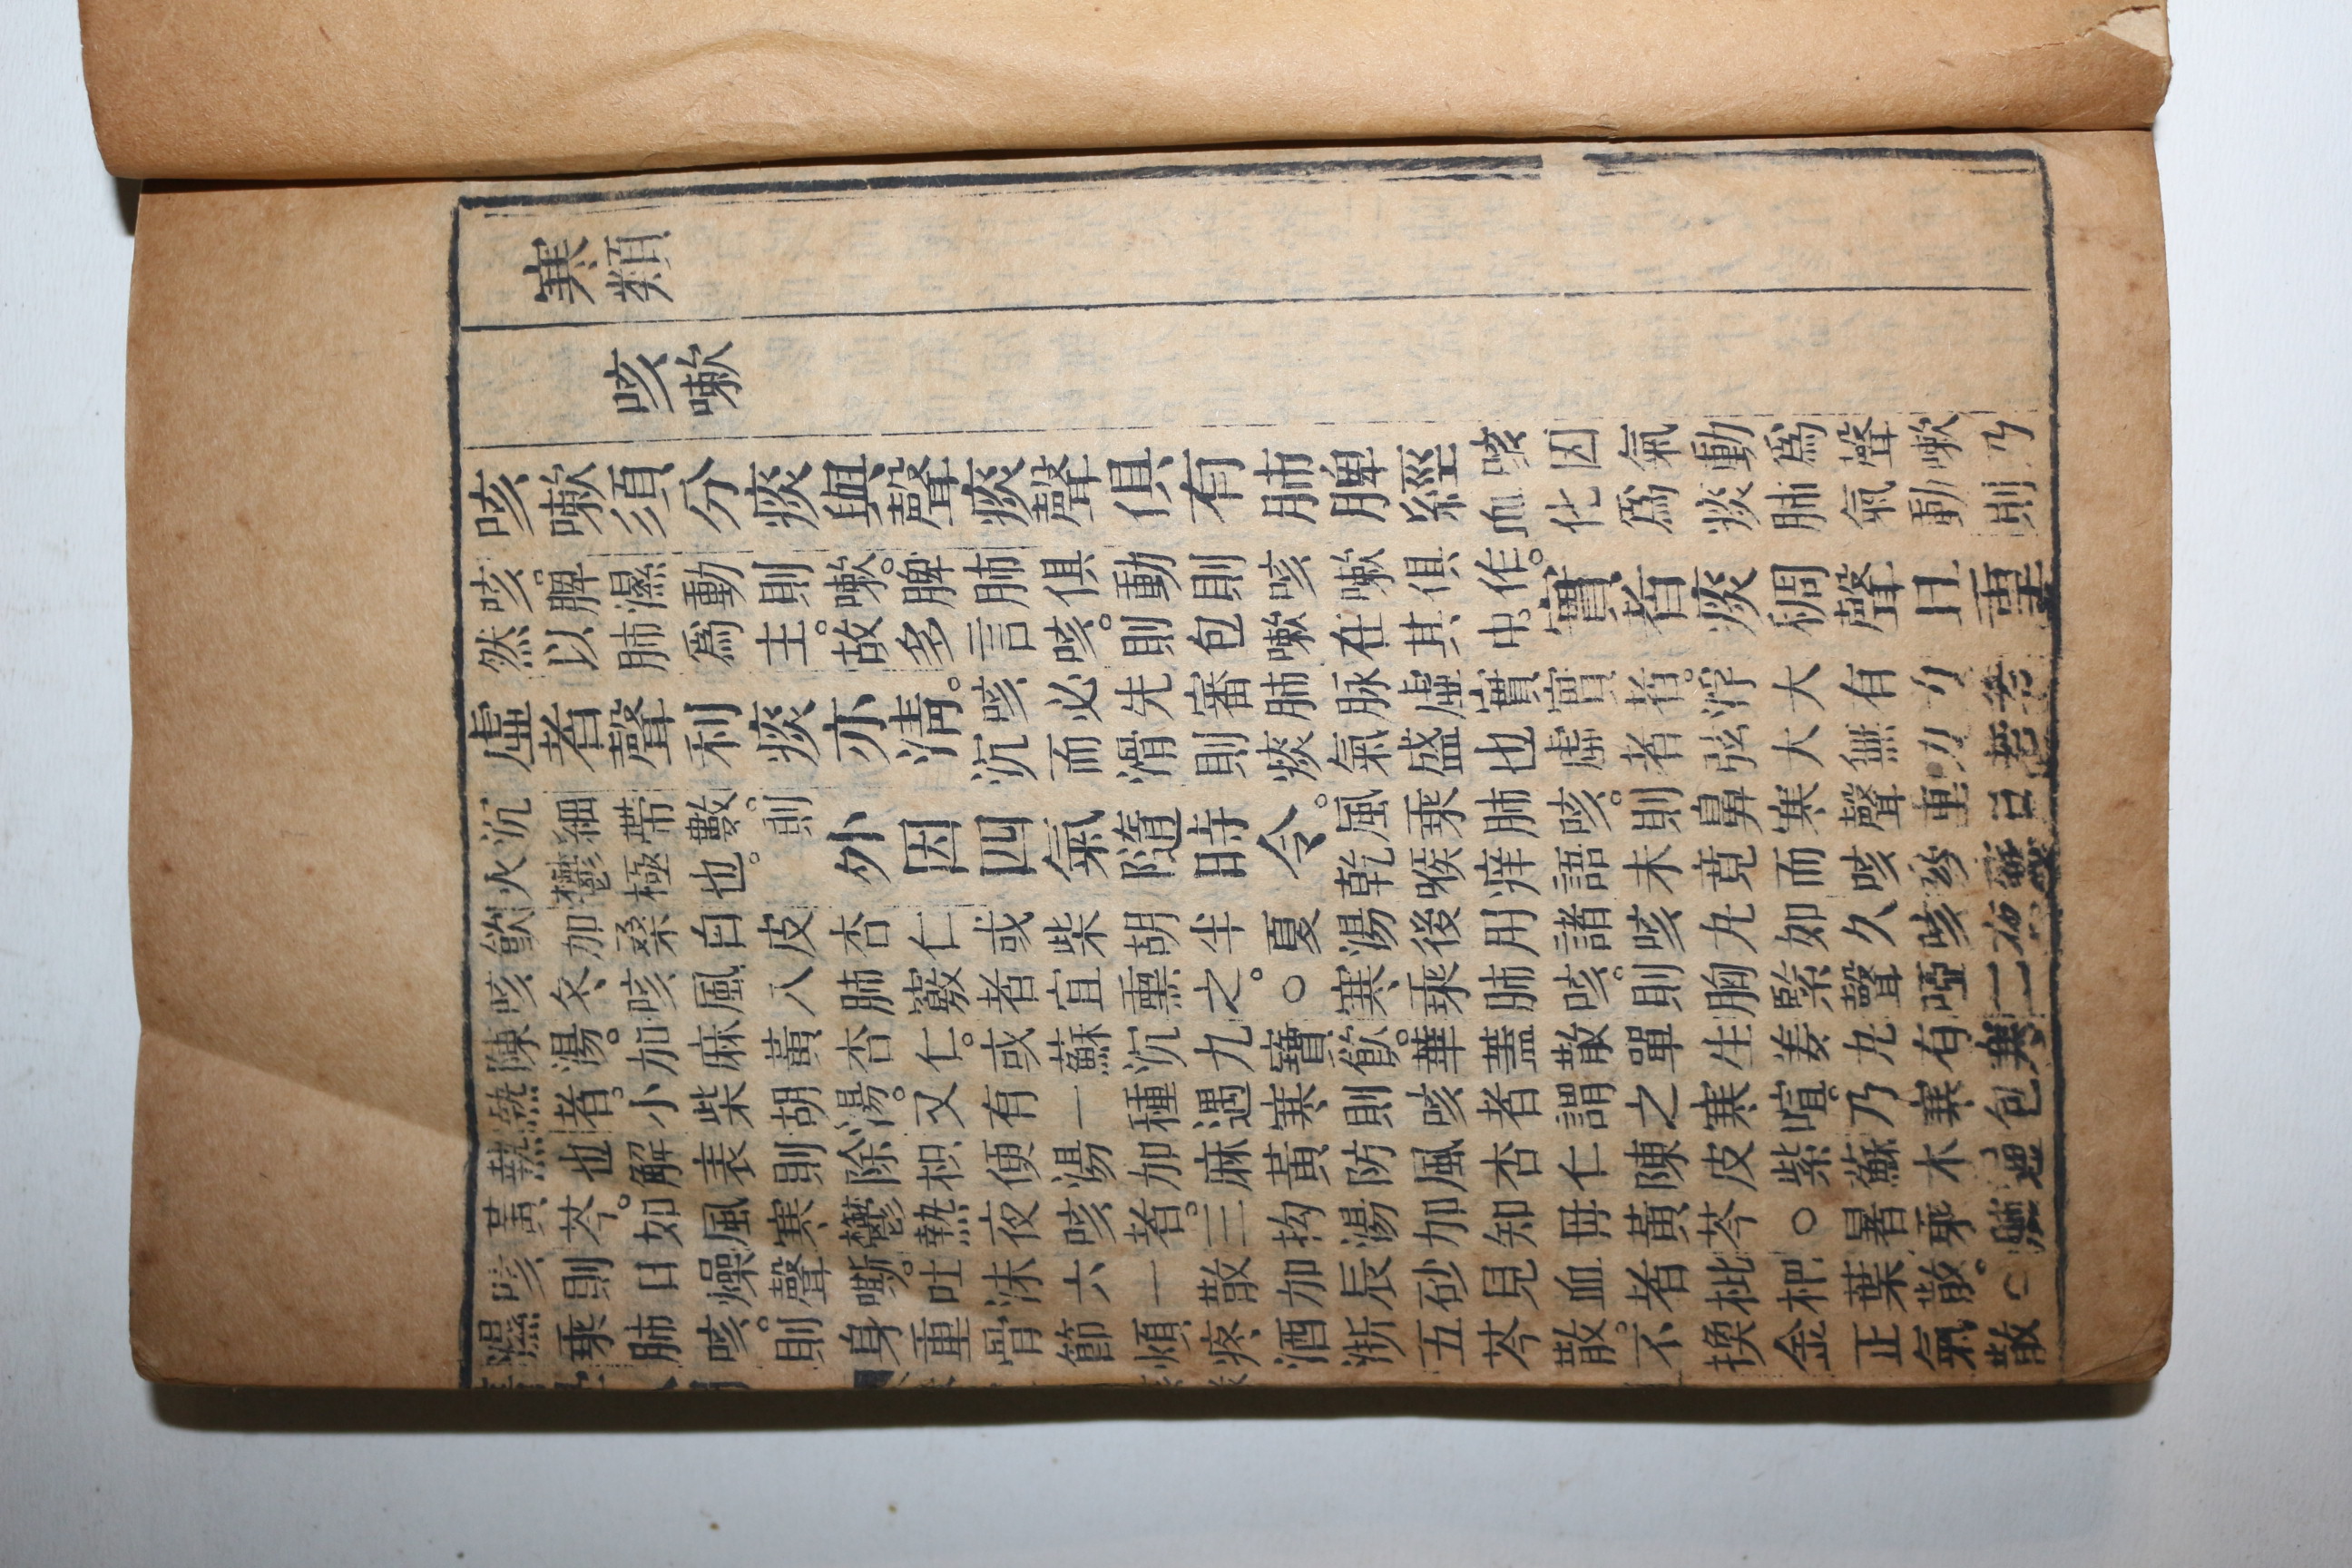 寒類
咳嗽
咳嗽須分痰與聲痰聲俱有肺脾經
咳因氣動爲聲嗽乃
血化爲痰肺氣動則
咳。脾濕動則嗽。脾肺俱動則咳嗽俱作。
然以肺爲主。故多言咳。則包嗽在其中。
實者痰稠聲且重
虛者聲利痰亦淸。
咳必先審肺脉虛實實者。浮大有力若
沉而滑則痰氣盛也虛者弦大無力若
沉細帶數。則
火鬱極也。
外因四氣隨時令。
風乘肺咳。則鼻寒聲重口
乾喉痒語未竟而咳參蘇
飮加桑白皮杏仁或柴胡半夏湯後用諸咳丸如久咳夜
咳冬咳風八肺竅者宜熏之。○寒乘肺咳。則胸緊聲啞二
陳湯。加麻黃杏仁。或蘇沉九寶飮。華蓋散單生姜丸有寒
熱者。小柴胡湯。又有一種遇寒則咳者謂之寒暄。乃寒包
熱也解表則除枳便湯加麻黃防風杏仁陳皮紫蘇木通
黃芩。如風寒鬱熱夜咳者。三拘湯加知毋黃芩。○暑乘肺
咳則口燥聲嘶。吐沫六一散加辰砂見血者枇杷葉散。○
濕乘肺咳。則身重骨節煩疼洒淅五芩散。不換金正氣散